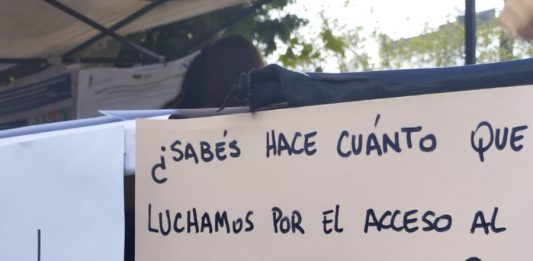 ¿SABÉS HACE CUÁNTO QUE
LUCHAMOS POR EL ACCESO AL